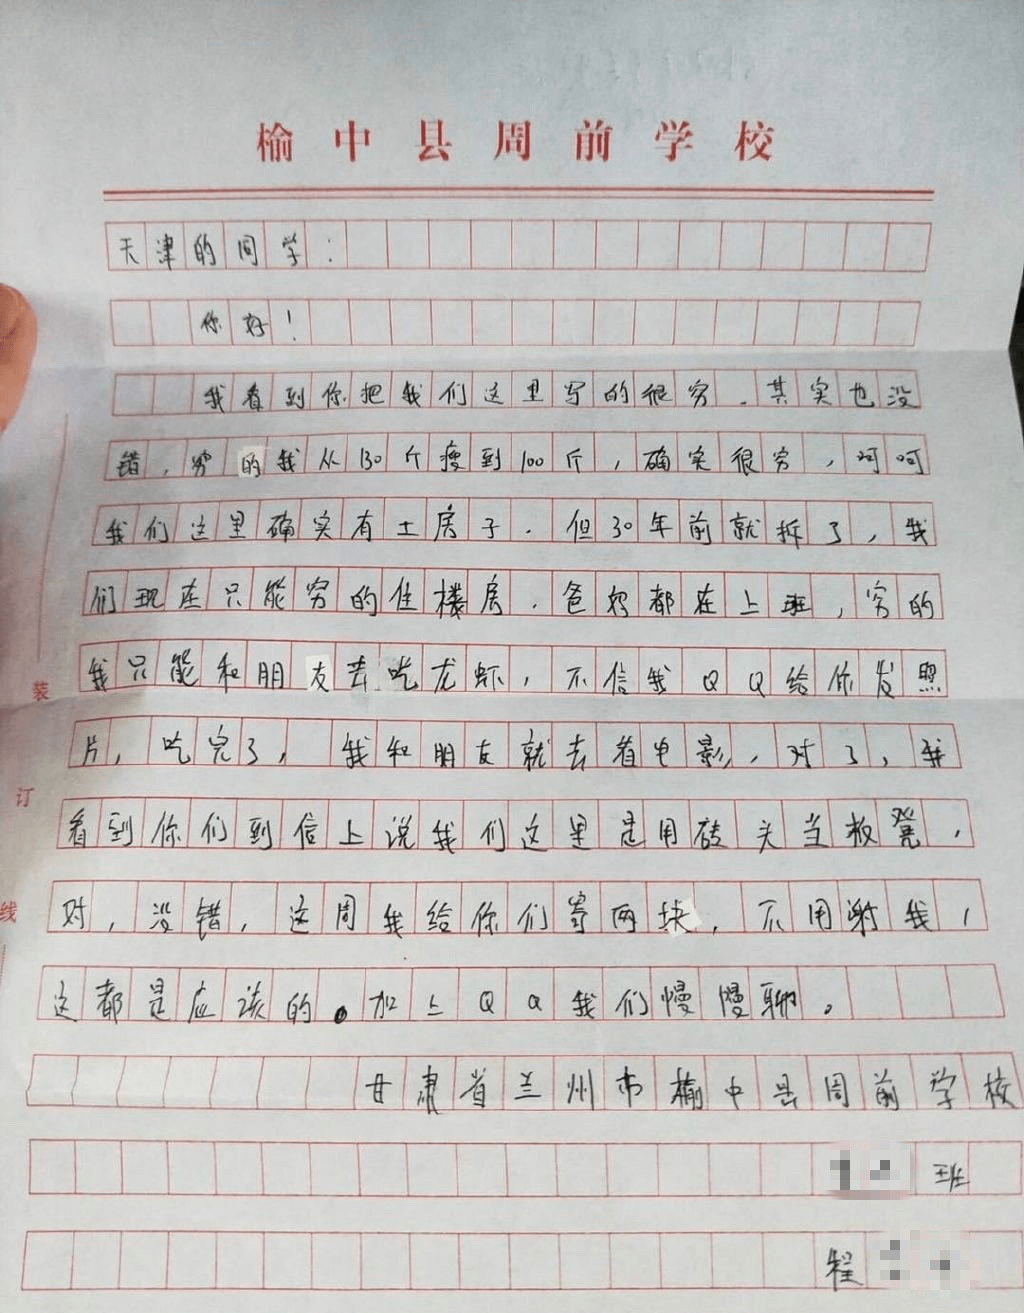 榆中县周前学校
天津的同学：
你好！
我看到你把我们这里写的很穷．其实也没
错，穷的我从130斤瘦到100斤，确实很穷，呵呵
我们这里确实有土房子．但30年前就拆了，我
们现在只能穷的住楼房．爸妈都在上班，穷的
我只能和朋友去吃龙虾，不信我QQ给你发照
片，吃完了，我和朋友就去看电影，对了，我
看到你们到信上说我们这里是用砖头当板凳，
对，没错，这周我给你们寄两块，不用谢我，
这都是应该的。加上QQ我们慢慢聊。
甘肃省兰州市榆中县周前学校
班
程
装
订
线